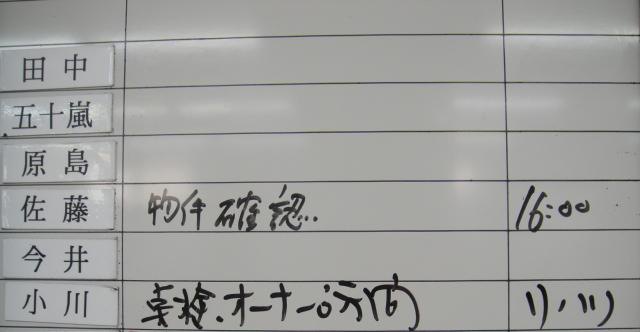 田中
五十嵐
原島
佐藤 物件確認.. 16:00
今井
小川 車検、オーナー訪問